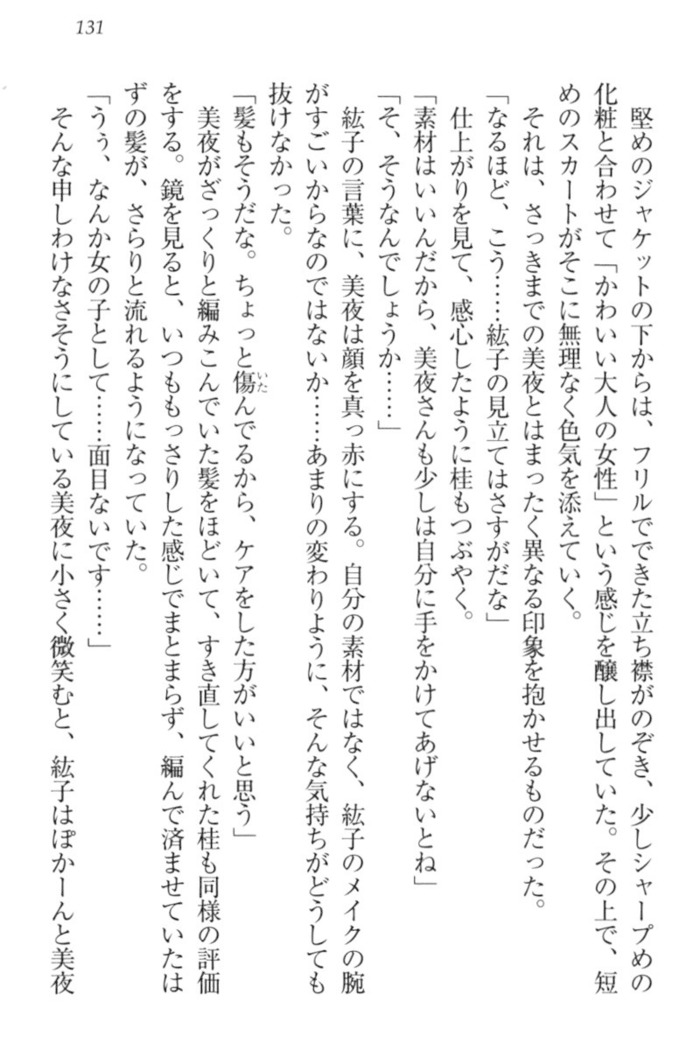 131
堅めのジャケットの下からは、フリルでできた立ち襟がのぞき、少しシャープめの
化粧と合わせて「かわいい大人の女性」という感じを醸し出していた。その上で、短
めのスカートがそこに無理なく色気を添えていく。
それは、さっきまでの美夜とはまったく異なる印象を抱かせるものだった。
「なるほど、こう……紘子の見立てはさすがだな」
仕上がりを見て、感心したように桂もつぶやく。
「素材はいいんだから、美夜さんも少しは自分に手をかけてあげないとね」
「そ、そうなんでしょうか……」
紘子の言葉に、美夜は顔を真っ赤にする。自分の素材ではなく、紘子のメイクの腕
がすごいからなのではないか……あまりの変わりように、そんな気持ちがどうしても
抜けなかった。
「髪もそうだな。ちょっと傷んでるから、ケアをした方がいいと思う」
いた
美夜がざっくりと編みこんでいた髪をほどいて、すき直してくれた桂も同様の評価
をする。鏡を見ると、いつももっさりした感じでまとまらず、編んで済ませていたは
ずの髪が、さらりと流れるようになっていた。
「うぅ、なんか女の子として……面目ないです……」
そんな申しわけなさそうにしている美夜に小さく微笑むと、紘子はぽかーんと美夜